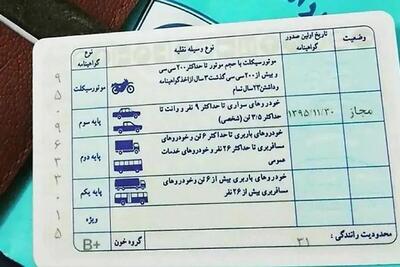 وضعیت
تاریخ اولین صدور
گواهینامه
نوع وسیله نقلیه
نوع
گواهینامه
موتورسیکلت با حجم موتور تا حداکثر ۲۰۰ سی سی
و بیش از ۲۰۰ سی سی گذشت ۳ سال از اخذ گواهینامه
و داشتن ۲۳ سال تمام
موتورسیکلت
مجاز
۱۳۹۵/۱۱/۳۰
خودروهای سواری تا حداکثر ۹ نفر و وانت تا
حداکثر ۳/۵ تن (شخصی)
پایه سوم
خودروهای باربری تا حداکثر ۶ تن و خودروهای
مسافربری تا حداکثر ۲۶ نفر و خودروهای خدمات
عمومی
پایه دوم
خودروهای باربری بیش از ۶ تن و خودروهای
مسافربری بیش از ۲۶ نفر
پایه یکم
ویژه
محدودیت رانندگی : ۳۱
گروه خون : B+